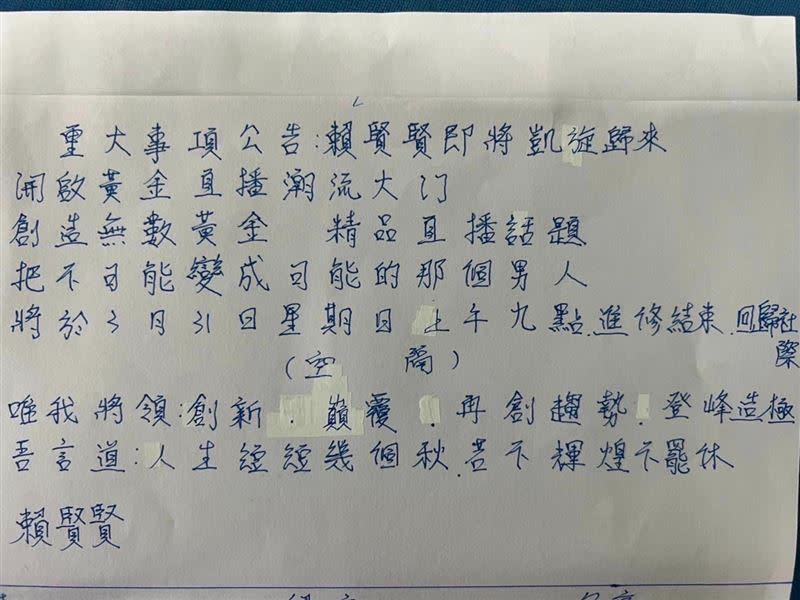 重大事項公告:賴賢賢即將凱旋歸來
開啟黃金直播潮流大门
創造無數黃金 精品直播話題
把不可能變成可能的那個男人
將於3月31日星期日上午九點.進修結束.回歸社際
(空 閣)
唯我將領:創新.巔覆.再創趨勢.登峰造極
吾言道:人生短短幾個秋.若不輝煌不罷休
賴賢賢